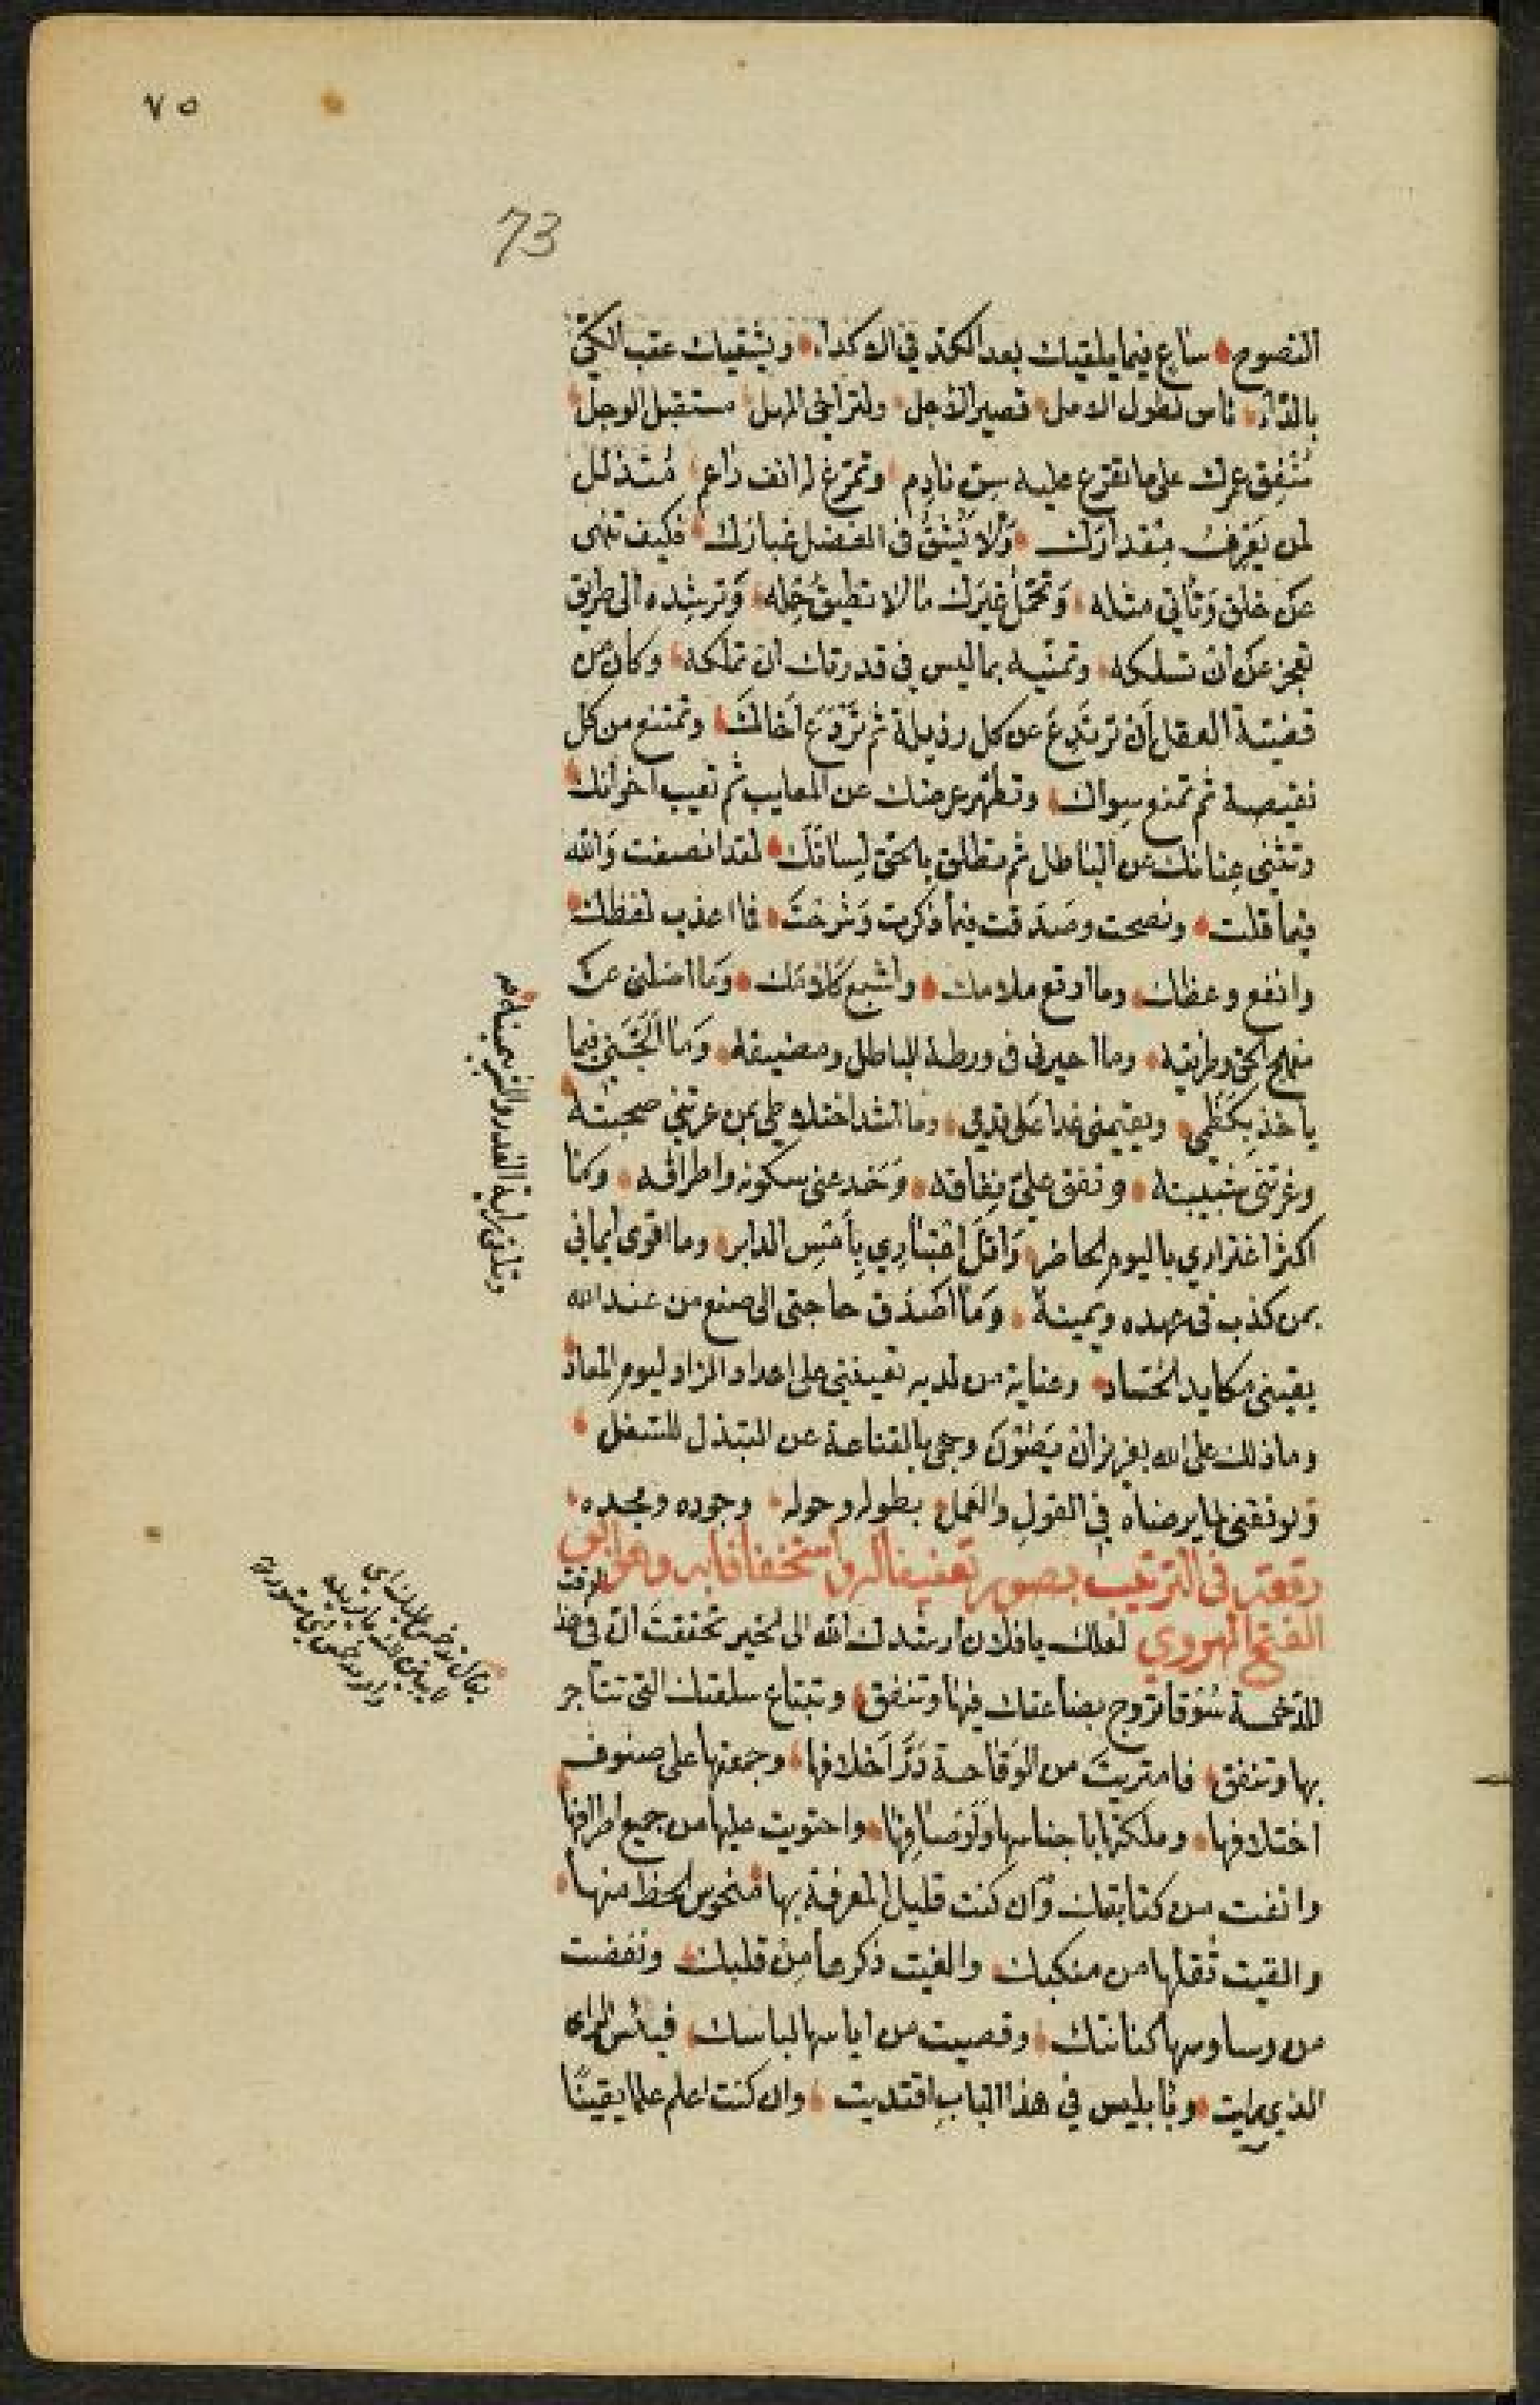 ٧٥
73
النصوح ساع فيما يلقيك بعد الكد في الاكداء ويشقيك عقب الكي
بالداء ناس لطول الامل قصير الاجل ولتراخي المهل مستقبل الوجل
مُنْفِق عمرك على ما تقرع عليه سن نادم وتمرغ له انف راغم مُتذلل
لمن يَعْرِفُ مِقدارك وَلا يَشُقُّ في الفضل غبارك فكيف تنهى
عن خلق وَتأتي مثله وَتحمل غيرك ما لا تطيق حمله وَترشده الى طريق
تعجز عن ان تسلكه وتمنيه بما ليس في قدرتك ان تملكه وكان من
قضية العقل أن ترتدع عن كل رذيلة ثم تَرْدَع اَخالك وتمتنع من كل
نقيصة ثم تمنع سواك وتطهر عرضك عن المعايب ثم تعيب اخوانك
وتثنى عنانك عن الباطل ثم تطلق بالحق لِسانَك لقد انصفت وَالله
فيما قلت ونصحت وصَدقت فيما ذكرت وَشرحتَ فما اعذب لفظك
وانفع وعظك وما اوقع ملامك واشبع كلامك وَما اضلني عن
منهج الحق وطريقه وما احيرني في ورطة الباطل ومضيقه وَما
ياخذ بكظمي ويقيمني غدا عَلى قدمي وما اشد اختلاطي بمن غرتني صحبته
وغرتني شبيبته ونفق عليّ نِفاقه وَخدعني سكونه واطراقه وَما
اكثر اغتراري باليوم الحاضر وَاقلّ اعْتباري بِأَمْسِ الدابر وما اقوى ايماني
بمن كذب في عهده ويمينه وَما اصْدَق حاجتي الى صنع من عند الله
يقيني مكايد الحساد وعناية من لديه تعينني على اعداد الزاد ليوم المعاد
وما ذلك على الله بعزيز ان يَصُوْنَ وجهي بالقناعة عن التبذل للسفل
وَيوفقني لما يرضاه في القول والعَمل بطوله وحوله وجوده ومجده
رقعة في الترتيب بصوبر تعنيفا له واستخفافا به وهو ابو
الفتح الهروي لعلك يا فلان ارشدك الله الى الخير تحققتَ انّ في هذا الوقت
للتخمة سُوْقا تروج بضاعتك فيها وتنفق وتبتاع سلعتك التي تتاجر
بها وتنفق فامتريتَ من الوَقاحة دَرّ اَخلافها وجمعتها على صنوف
اختلافها وملكتها باجناسها وَاَوصافها واحتويت عليها من جميع اطرافها
وانفت من كتابتك وَان كنت قليل المعرفة بها منحوس الحظ منها
والقيت ثقلها من منكبك والغيت ذكرها مِن قلبك ونفضت
من وساوسها كنانتك وقصيت من اياسها لباسك فبئس الراى
الذي رايت وَبابليس في هذا الباب اقتديت وان كنت اعلم علما يقينًا